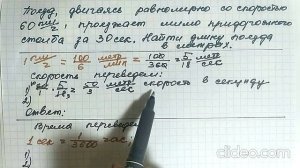 Поезд, двигаясь равномерно со скоростью
60 км/ч, проезжает мимо придорожного
столба за 30 сек. Найти длину поезда
в метрах.
1 км/ч = 100/6 мет/мин = 100/360 = 5/18 мет/сек
Скорость переведём:
1) 60 · 5/18 = 50/3 мет/сек скорость в секунду
2)
Ответ:
Время переведём
1 сек = 1/3600 час;
1)
2)
clideo.com